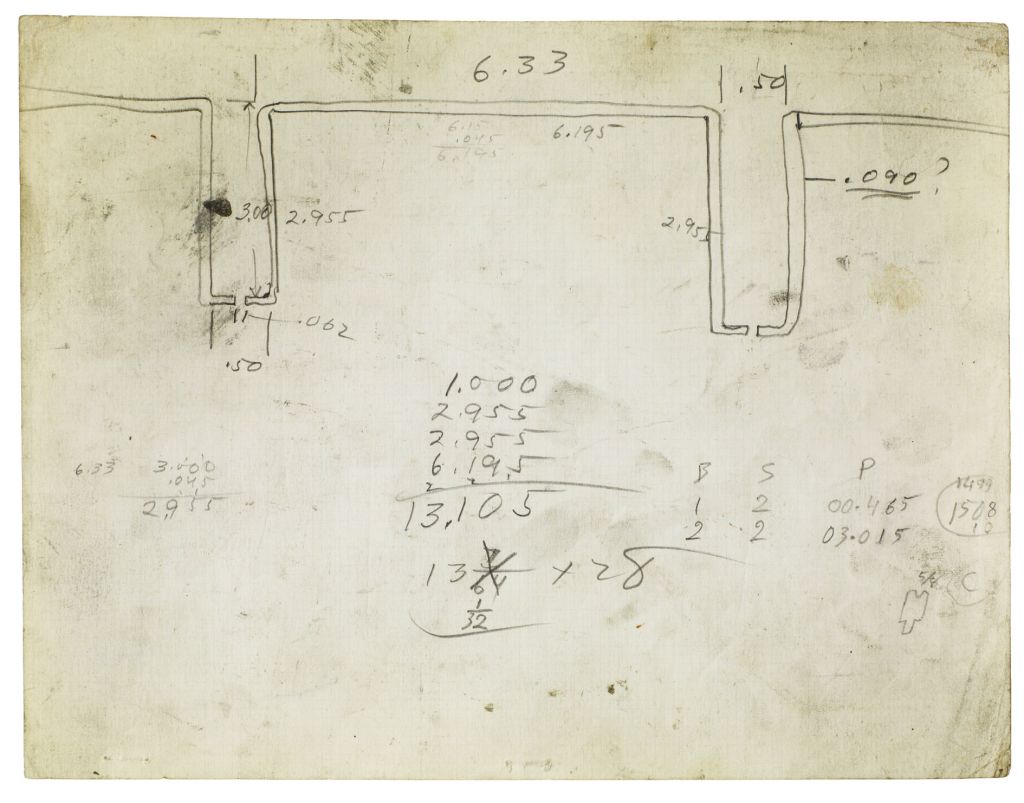 6.33
.50
6.15
.045
6.195
6.195
.090?
3.00
2.955
2.955
.062
.50
1.000
2.955
2.955
6.195
2 2
13,105
6.33
3.000
.045
2,955
B S P
1 2 00.465
2 2 03.015
1499
1508
10
13 7/64 x 28
1/32
5/8
C